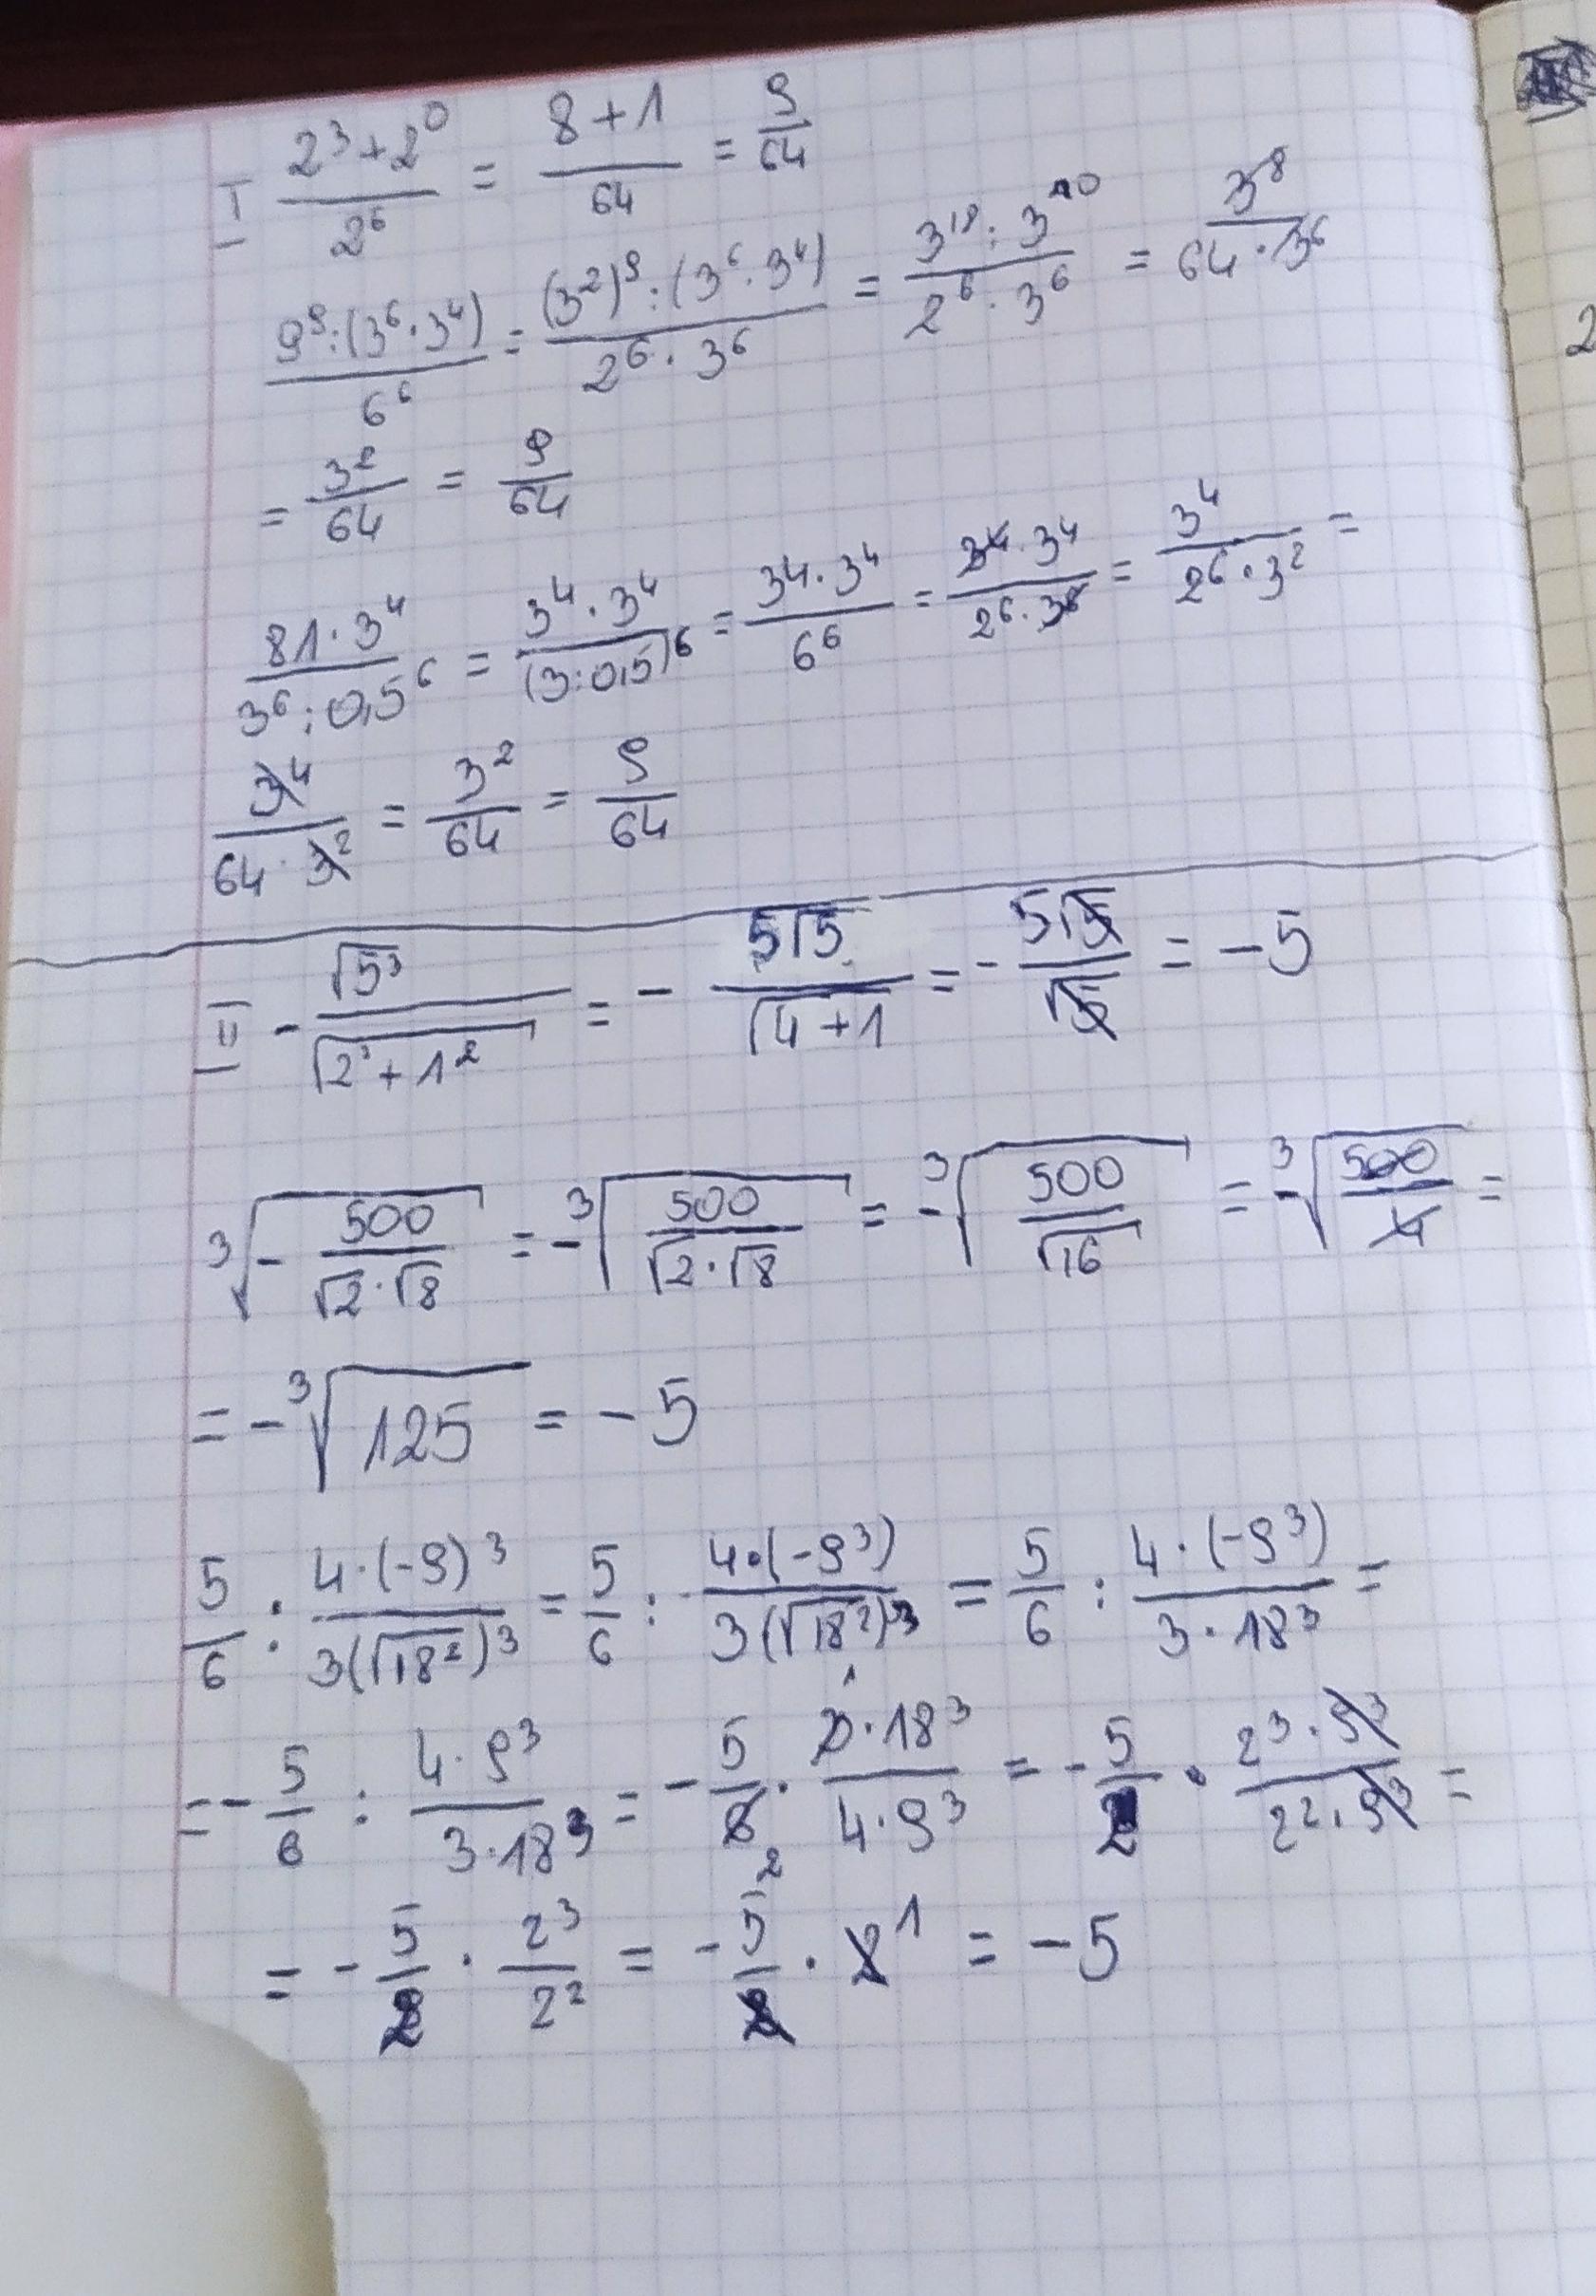 I (2³+2⁰)/2⁶ = (8+1)/64 = 9/64
(9⁹:(3⁶·3⁴))/6⁶ = ((3²)⁹:(3⁶·3⁴))/(2⁶·3⁶) = (3¹⁸:3¹⁰)/(2⁶·3⁶) = 3⁸/(64·3⁶)
= 3²/64 = 9/64
(81·3⁴)/(3⁶:0,5⁶) = (3⁴·3⁴)/(3:0,5)⁶ = (3⁴·3⁴)/6⁶ = (3⁴·3⁴)/(2⁶·3⁶) = 3⁴/(2⁶·3²) =
3⁴/(64·3²) = 3²/64 = 9/64
II -√5³/√(2²+1²) = - 5√5/√(4+1) = - 5√5/√5 = -5
³√(-500/(√2·√8)) = -³√(500/(√2·√8)) = -³√(500/√16) = -³√(500/4) =
= -³√125 = -5
5/6 : (4·(-9)³)/(3(√18²)³) = 5/6 : (4·(-9³))/(3(√18²)³) = 5/6 : (4·(-9³))/(3·18³) =
= - 5/6 : (4·9³)/(3·18³) = - 5/6 2 · (3 1·18³)/(4·9³) = - 5/2 · (2³·9³)/(2²·9³) =
= - 5/2 · 2³/2² = - 5/2 · 2 1 = -5